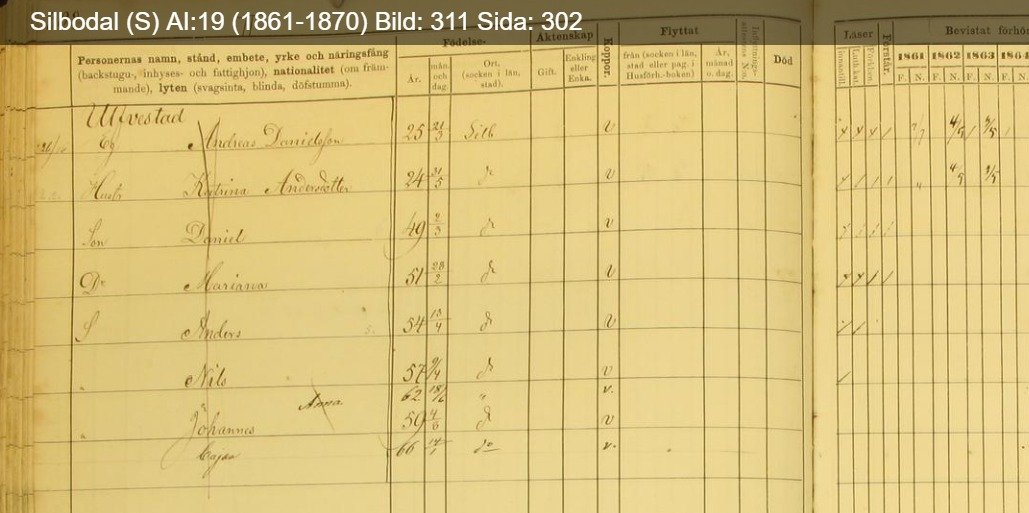 Silbodal (S) AI:19 (1861-1870) Bild: 311 Sida: 302
Födelse- Äktenskap Koppor. Flyttat Död Läser Förstår. Bevistat förhör
Personernas namn, stånd, embete, yrke och näringsfång
(backstugu-, inhyses- och fattighjon), nationalitet (om främ-
mande), lyten (svagsinta, blinda, döfstumma).
År. mån. och dag. Ort, (socken i län, stad). Gift. Enkling eller Enka. från (socken i län, stad eller pag. i Husförh.-boken) År, månad o. dag.
1861 1862 1863 1864
F. N. F. N. F. N. F. N.
Ulfvestad
Eg Andreas Danielsson 25 21/3 Silb v
Hustr Katrina Andersdotter 24 31/5 d v
Son Daniel 49 2/3 d v
Dr Mariana 51 28/2 d v
S Anders 54 13/4 d v
" Nils 57 9/4 d v
Anna 62 18/6 " v.
" Johannes 59 4/6 d v
Cajsa 66 14/1 do v.